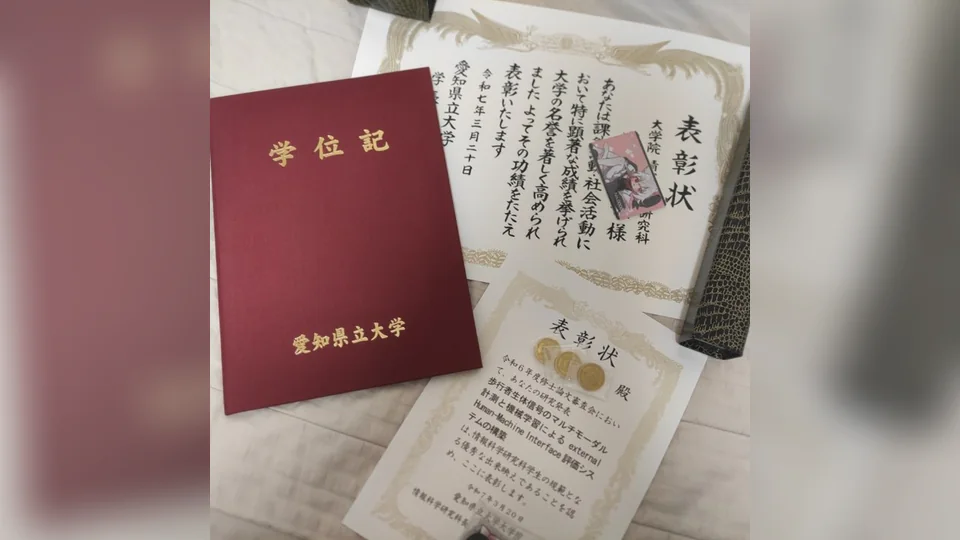 学位記
愛知県立大学
表彰状
大学院 情
研究科
様
あなたは課
動・社会活動に
おいて特に顕著な成績を挙げられ
大学の名誉を著しく高められ
ました よってその功績をたたえ
表彰いたします
令和七年三月二十日
愛知県立大学
学長
表彰状
殿
令和6年度修士論文審査会におい
て、あなたの研究発表
歩行者生体信号のマルチモーダル
計測と機械学習による external
Human-Machine Interface 評価シス
テムの構築
は、情報科学研究科学生の規範とな
る優秀な出来映えであることを認
め、ここに表彰します。
令和7年3月20日
愛知県立大学大学院
情報科学研究科長